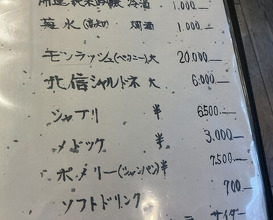 純米吟醸 冷酒 1.000.—
菊水(高知) 燗酒 1.000.—
モンラッシェ(ベクニー)大 20.000—
北信シャルドネ 大 6.000.—
シャブリ 半 6500.—
メドック 半 3.000.—
ポメリー(シャンパン)半 7.500.—
ソフトドリンク 700.—
サイダー